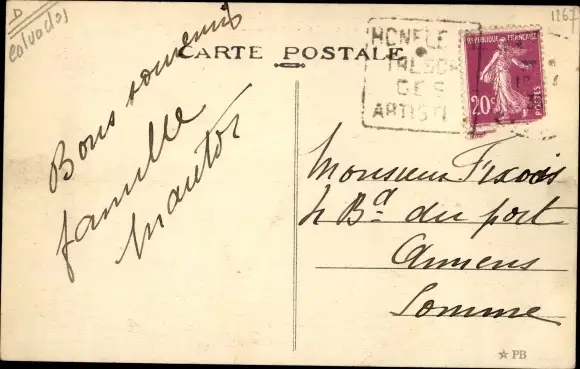 D
Calvados
1267
CARTE POSTALE
HONFLE
TRESOR
DES
ARTIST
REPUBLIQUE FRANÇAISE
20c
POSTES
Bons souvenirs
famille
Monsieur
4 Bd du port
Amiens
Somme
PB